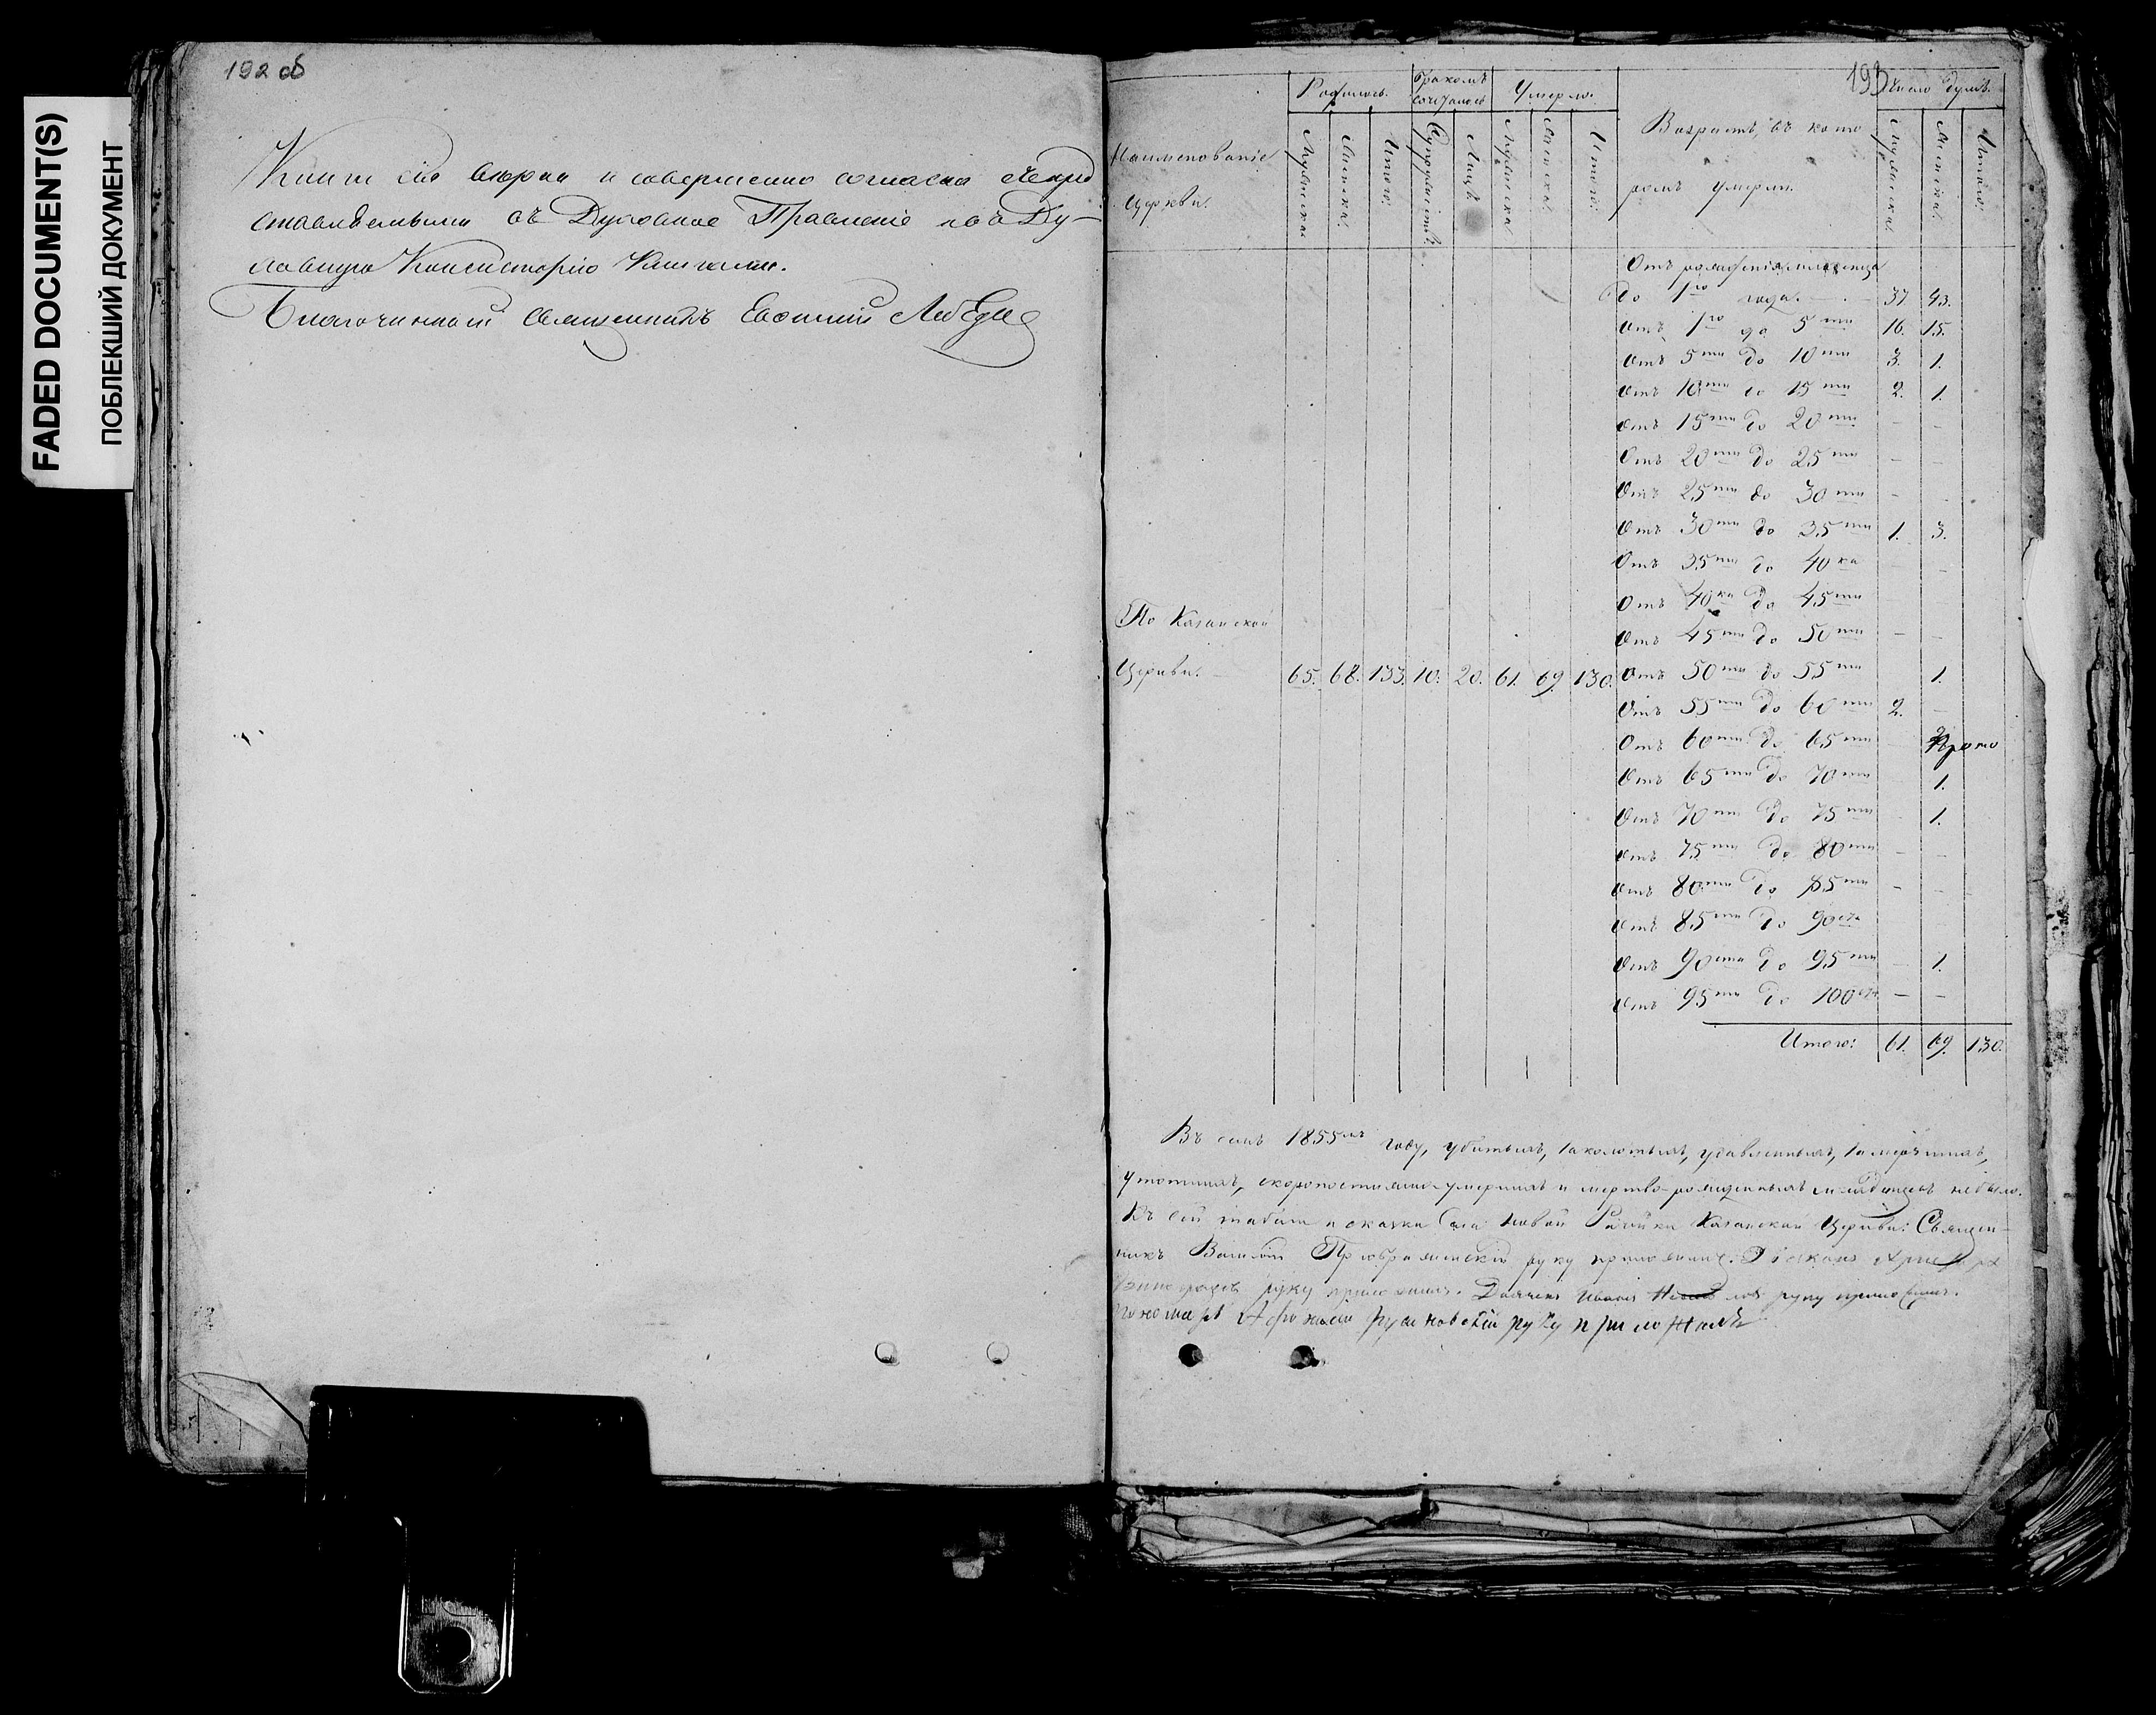 FADED DOCUMENT(S)
ПОБЛЕКШИЙ ДОКУМЕНТ
192 об
Книга сія верна и совершенно согласна съ пред
ставляемыми въ Духовное Правленіе и въ Ду-
ховную Консисторію Книгами.
Благочинный Священникъ Евѳимій
193
Родилось. Бракомъ сочеталось Умерло. Число душъ.
Наименованіе Церкви. Мужеска Женска. Итого: Супружествъ. Лицъ. Мужеска Женска. Итого: Возрастъ, въ кото ромъ умерли. Мужеска. Женска. Итого:
Отъ рожденія младенца
до 1го года. 37. 43.
Отъ 1го до 5ти 16. 15.
Отъ 5ти до 10ти 3. 1.
Отъ 10ти до 15ти 2. 1.
Отъ 15ти до 20ти - -
Отъ 20ти до 25ти - -
Отъ 25ти до 30ти - -
Отъ 30ти до 35ти 1. 3.
Отъ 35ти до 40ка - -
Отъ 40ка до 45ти
Отъ 45ти до 50ти - -
По Казанской
Церкви. 65. 68. 133. 10. 20. 61. 69. 130. Отъ 50ти до 55ти 1.
Отъ 55ти до 60ти 2. -
Отъ 60ти до 65ти -
Отъ 65ти до 70ти 1.
Отъ 70ти до 75ти - 1.
Отъ 75ти до 80ти - -
Отъ 80ти до 85ти - -
Отъ 85ти до 90ста
Отъ 90ста до 95ти - 1.
Отъ 95ти до 100ста - -
Итого: 61. 69. 130.
Въ семъ 1855мъ году, убитыхъ, заколотыхъ, удавленныхъ, замерзшихъ,
утопшихъ, скоропостижно-умершихъ и мертво-рожденныхъ младенцевъ небыло.
Къ сей Села Новой Рачейки Казанской Церкви: Священ-
никъ Василій Преображенскій руку приложилъ. Діаконъ
руку приложилъ. Дьячекъ Иванъ руку приложилъ.
Пономарь руку приложилъ